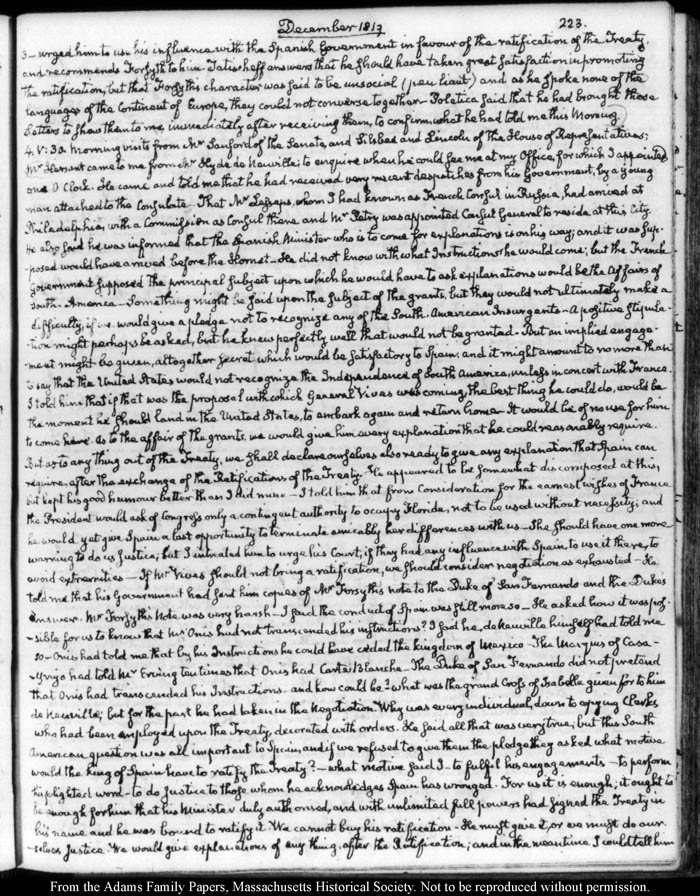 December 1819
223.
3_ urged him to use his influence with the Spanish Government in favour of the ratification of the Treaty,
and recommends Forsyth to him. Tatischeff answers that he should have taken great satisfaction in promoting
the ratification, but that Forsyth's character was said to be unsocial (peu liant) and as he spoke none of the
languages of the Continent of Europe, they could not converse together_ Poletica said that he had brought these
Letters to shew them to me, immediately after receiving them, to confirm what he had told me this Morning
4. V: 30. Morning visits from Mr Sanford of the Senate, and Silsbee and Lincoln of the House of Representatives;
Mr Thersant came to me from Mr Hyde de Neuville; to enquire when he could see me at my Office, for which I appointed
one O Clock. He came and told me that he had received very recent despatches from his Government, by a young
man attached to the Consulate. That Mr Lesseps, whom I had known as French Consul in Russia, had arrived at
Philadelphia, with a Commission as Consul there and Mr Petry was appointed Consul General to reside at this City.
He also said he was informed that the Spanish Minister who is to come for explanations is on his way; and it was sup-
-posed would have arrived before the Hornet_ He did not know with what Instructions he would come; but the French
Government supposed the principal subject upon which he would have to ask explanations would be the affairs of
South-America_ Something might be said upon the subject of the grants, but they would not ultimately make a
difficulty, if we would give a pledge not to recognize any of the South-American Insurgents_ A positive stipula-
-tion might perhaps be asked, but he knew perfectly well that would not be granted_ But an implied engage-
ment might be given, altogether secret which would be satisfactory to Spain, and it might amount to no more than
to say that the United States would not recognize the Independence of South America, unless in concert with France.
I told him that if that was the proposal with which General Vives was coming, the best thing he could do, would be
the moment he should land in the United States, to embark again and return home_ It would be of no use for him
to come here. As to the affair of the grants, we would give him every explanation that he could reasonably require.
But as to any thing out of the Treaty, we shall declare ourselves also ready to give any explanation that Spain can
require, after the exchange of the Ratifications of the Treaty_ He appeared to be somewhat discomposed at this,
but kept his good humour better than I did mine_ I told him that from Consideration for the earnest wishes of France
the President would ask of Congress only a contingent authority to occupy Florida, not to be used without necessity; and
he would yet give Spain a last opportunity to terminate amicably her differences with us_ She should have one more
warning to do us Justice; but I intreated him to urge his Court, if they had any influence with Spain, to use it there, to
avoid extremities_ If Mr Vives should not bring a ratification, we should consider negotiation as exhausted_ He
told me that his Government had sent him copies of Mr Forsyth's note to the Duke of San Fernando and the Duke's
answer. Mr Forsyth's Note was very harsh_ I said the conduct of Spain was still more so_ He asked how it was pos-
-sible for us to know that Mr Onis had not transcended his instructions? I said he, de Neuville himself had told me
so_ Onis had told me that by his Instructions he could have ceded the kingdom of Mexico_ The Marquis of Casa-
-Yrujo had told Mr Erving ten times that Onis had Carte Blanche_ The Duke of San Fernando did not pretend
that Onis had transcended his Instructions_ and how could he? what was the grand Cross of Isabella given for to him
de Neuville, but for the part he had taken in the Negotiation. Why was every individual, down to copying Clerks,
who had been employed upon the Treaty, decorated with orders. He said all that was very true; but this South
American question was all important to Spain, and if we refused to give them the pledge they asked what motive
would the king of Spain have to ratify the Treaty?_ what motive said I_ to fulfil his engagements_ to perform
his plighted word_ to do Justice to those whom he acknowledges Spain has wronged. For us it is enough; it ought to
be enough for him that his Minister duly authorised, and with unlimited full powers had signed the Treaty in
his name and he was bound to ratify it. We cannot buy his ratification_ He must give it, or we must do our-
-selves Justice. We would give explanations of any thing, after the Ratification; and in the mean time I could tell him
From the Adams Family Papers, Massachusetts Historical Society. Not to be reproduced without permission.